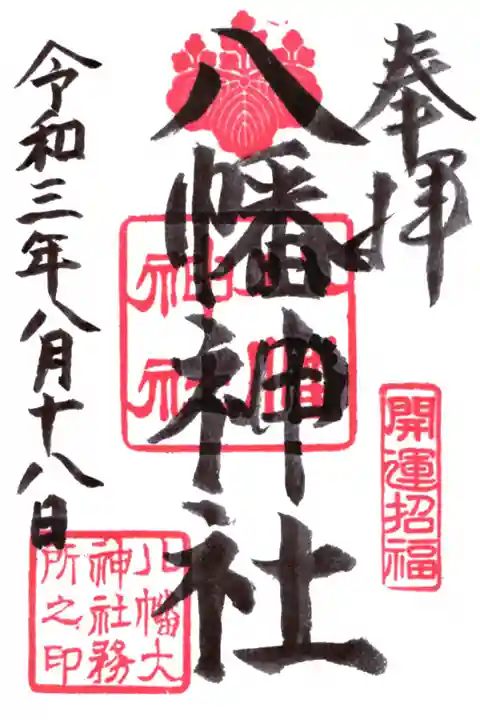 奉拝
開運招福
八幡神社
令和三年八月十八日
八幡大
神社務
所之印